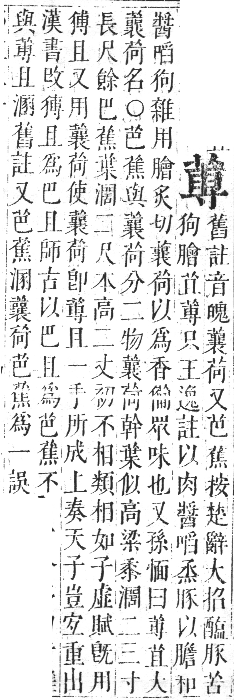 蒪
舊註音魄蘘荷又芭蕉按楚辭大招醢豚苦
狗膾苴蒪只王逸註以肉醬啗烝豚以膽和
醬啗狗雜用膾炙切蘘荷以爲香備眾味也又孫愐曰蒪苴大
蘘荷名○芭蕉與蘘荷分二物蘘荷幹葉似高梁黍濶二三寸
長尺餘巴蕉葉濶二尺本高二丈初不相類相如子虛賦旣用
猼且又用蘘荷使蘘荷卽蒪且一手所成上奏天子豈宐重出
漢書改猼且爲巴且師古以巴且爲芭蕉不
與蒪且溷舊註又芭蕉溷蘘荷芭蕉爲一誤